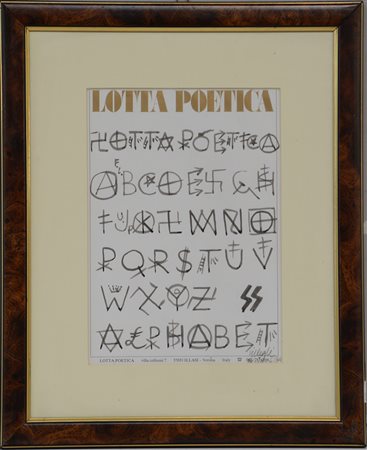 LOTTA POETICA
LOTTA POETICA
ABCDEFGH
IJKLMNO
PQRSTUV
WXYZ ϟϟ
ALPHABET
LOTTA POETICA 37031 ILLASI - Verona Italy